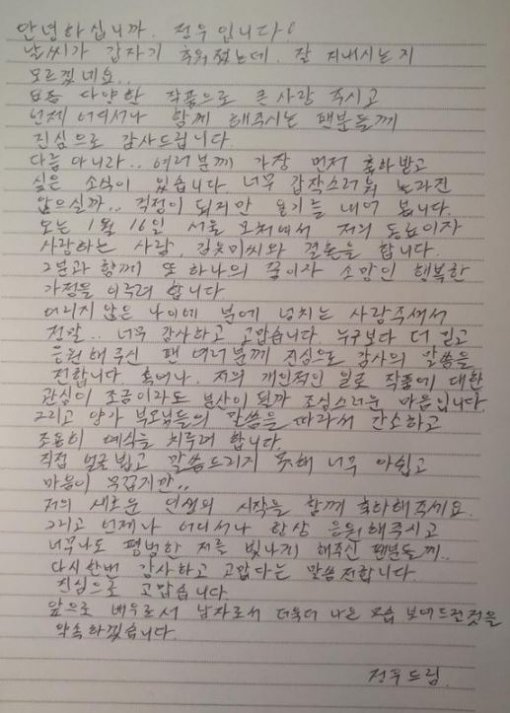 안녕하십니까. 정우입니다!
날씨가 갑자기 추워졌는데. 잘 지내시는지
모르겠네요..
요즘 다양한 작품으로 큰 사랑 주시고
언제 어디서나 함께 해주시는 팬분들께
진심으로 감사드립니다.
다름 아니라.. 여러분께 가장 먼저 축하받고
싶은 소식이 있습니다. 너무 갑작스러워 놀라진
않으실까.. 걱정이 되지만 용기를 내어 봅니다.
오는 1월 16일 서울 모처에서 저의 동료이자
사랑하는 사람, 김유미씨와 결혼을 합니다.
그분과 함께 또 하나의 꿈이자 소망인 행복한
가정을 이루려 합니다.
어리지 않은 나이에 분에 넘치는 사랑주셔서
정말.. 너무 감사하고 고맙습니다. 누구보다 더 믿고
응원해 주신 팬 여러분께 진심으로 감사의 말씀을
전합니다. 혹여나, 저의 개인적인 일로 작품에 대한
관심이 조금이라도 분산이 될까 조심스러운 마음입니다.
그리고 양가 부모님들의 말씀을 따라서 간소하고
조용히 예식을 치루려 합니다.
직접 얼굴뵙고 말씀드리지 못해 너무 아쉽고
마음이 무겁지만..
저의 새로운 인생의 시작을 함께 축하해주세요.
그리고 언제나 어디서나 항상 응원해주시고
너무나도 평범한 저를 빛나게 해주신 팬분들께..
다시한번 감사하고 고맙다는 말씀전합니다.
진심으로 고맙습니다.
앞으로 배우로서 남자로서 더욱더 나은 모습 보여드린것을
약속하겠습니다.
정우드림.